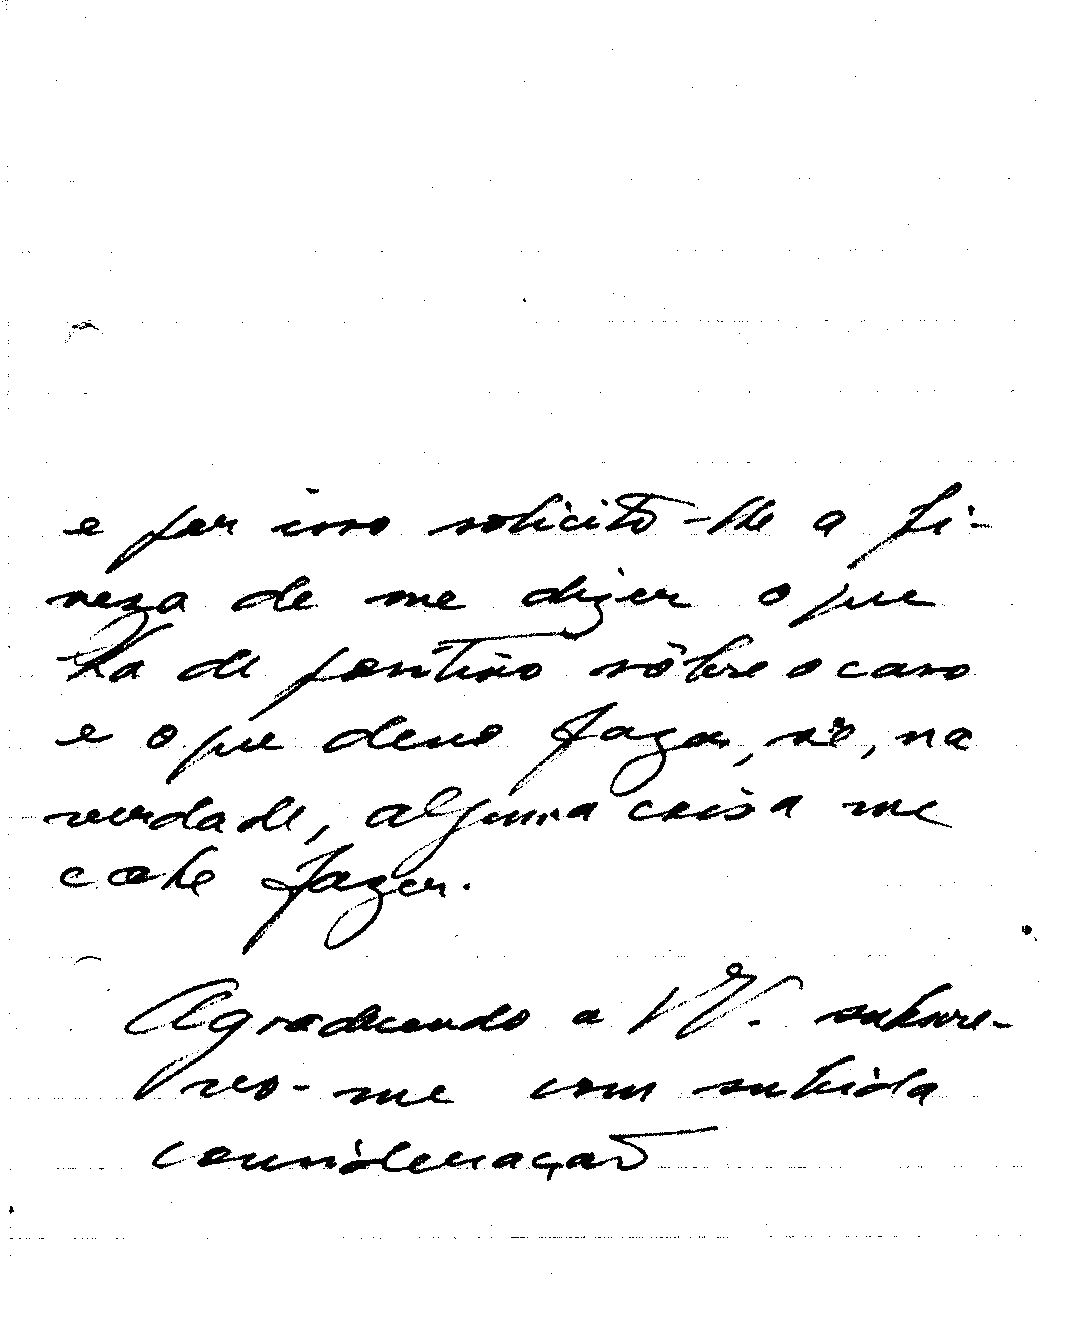 e por isso solicito-lhe a fi-
neza de me dizer o que
ha de positivo sôbre o caso
e o que devo fazer, se, na
verdade, alguma coisa me
cabe fazer.
Agradecendo a V. subscre-
vo-me com subida
consideração